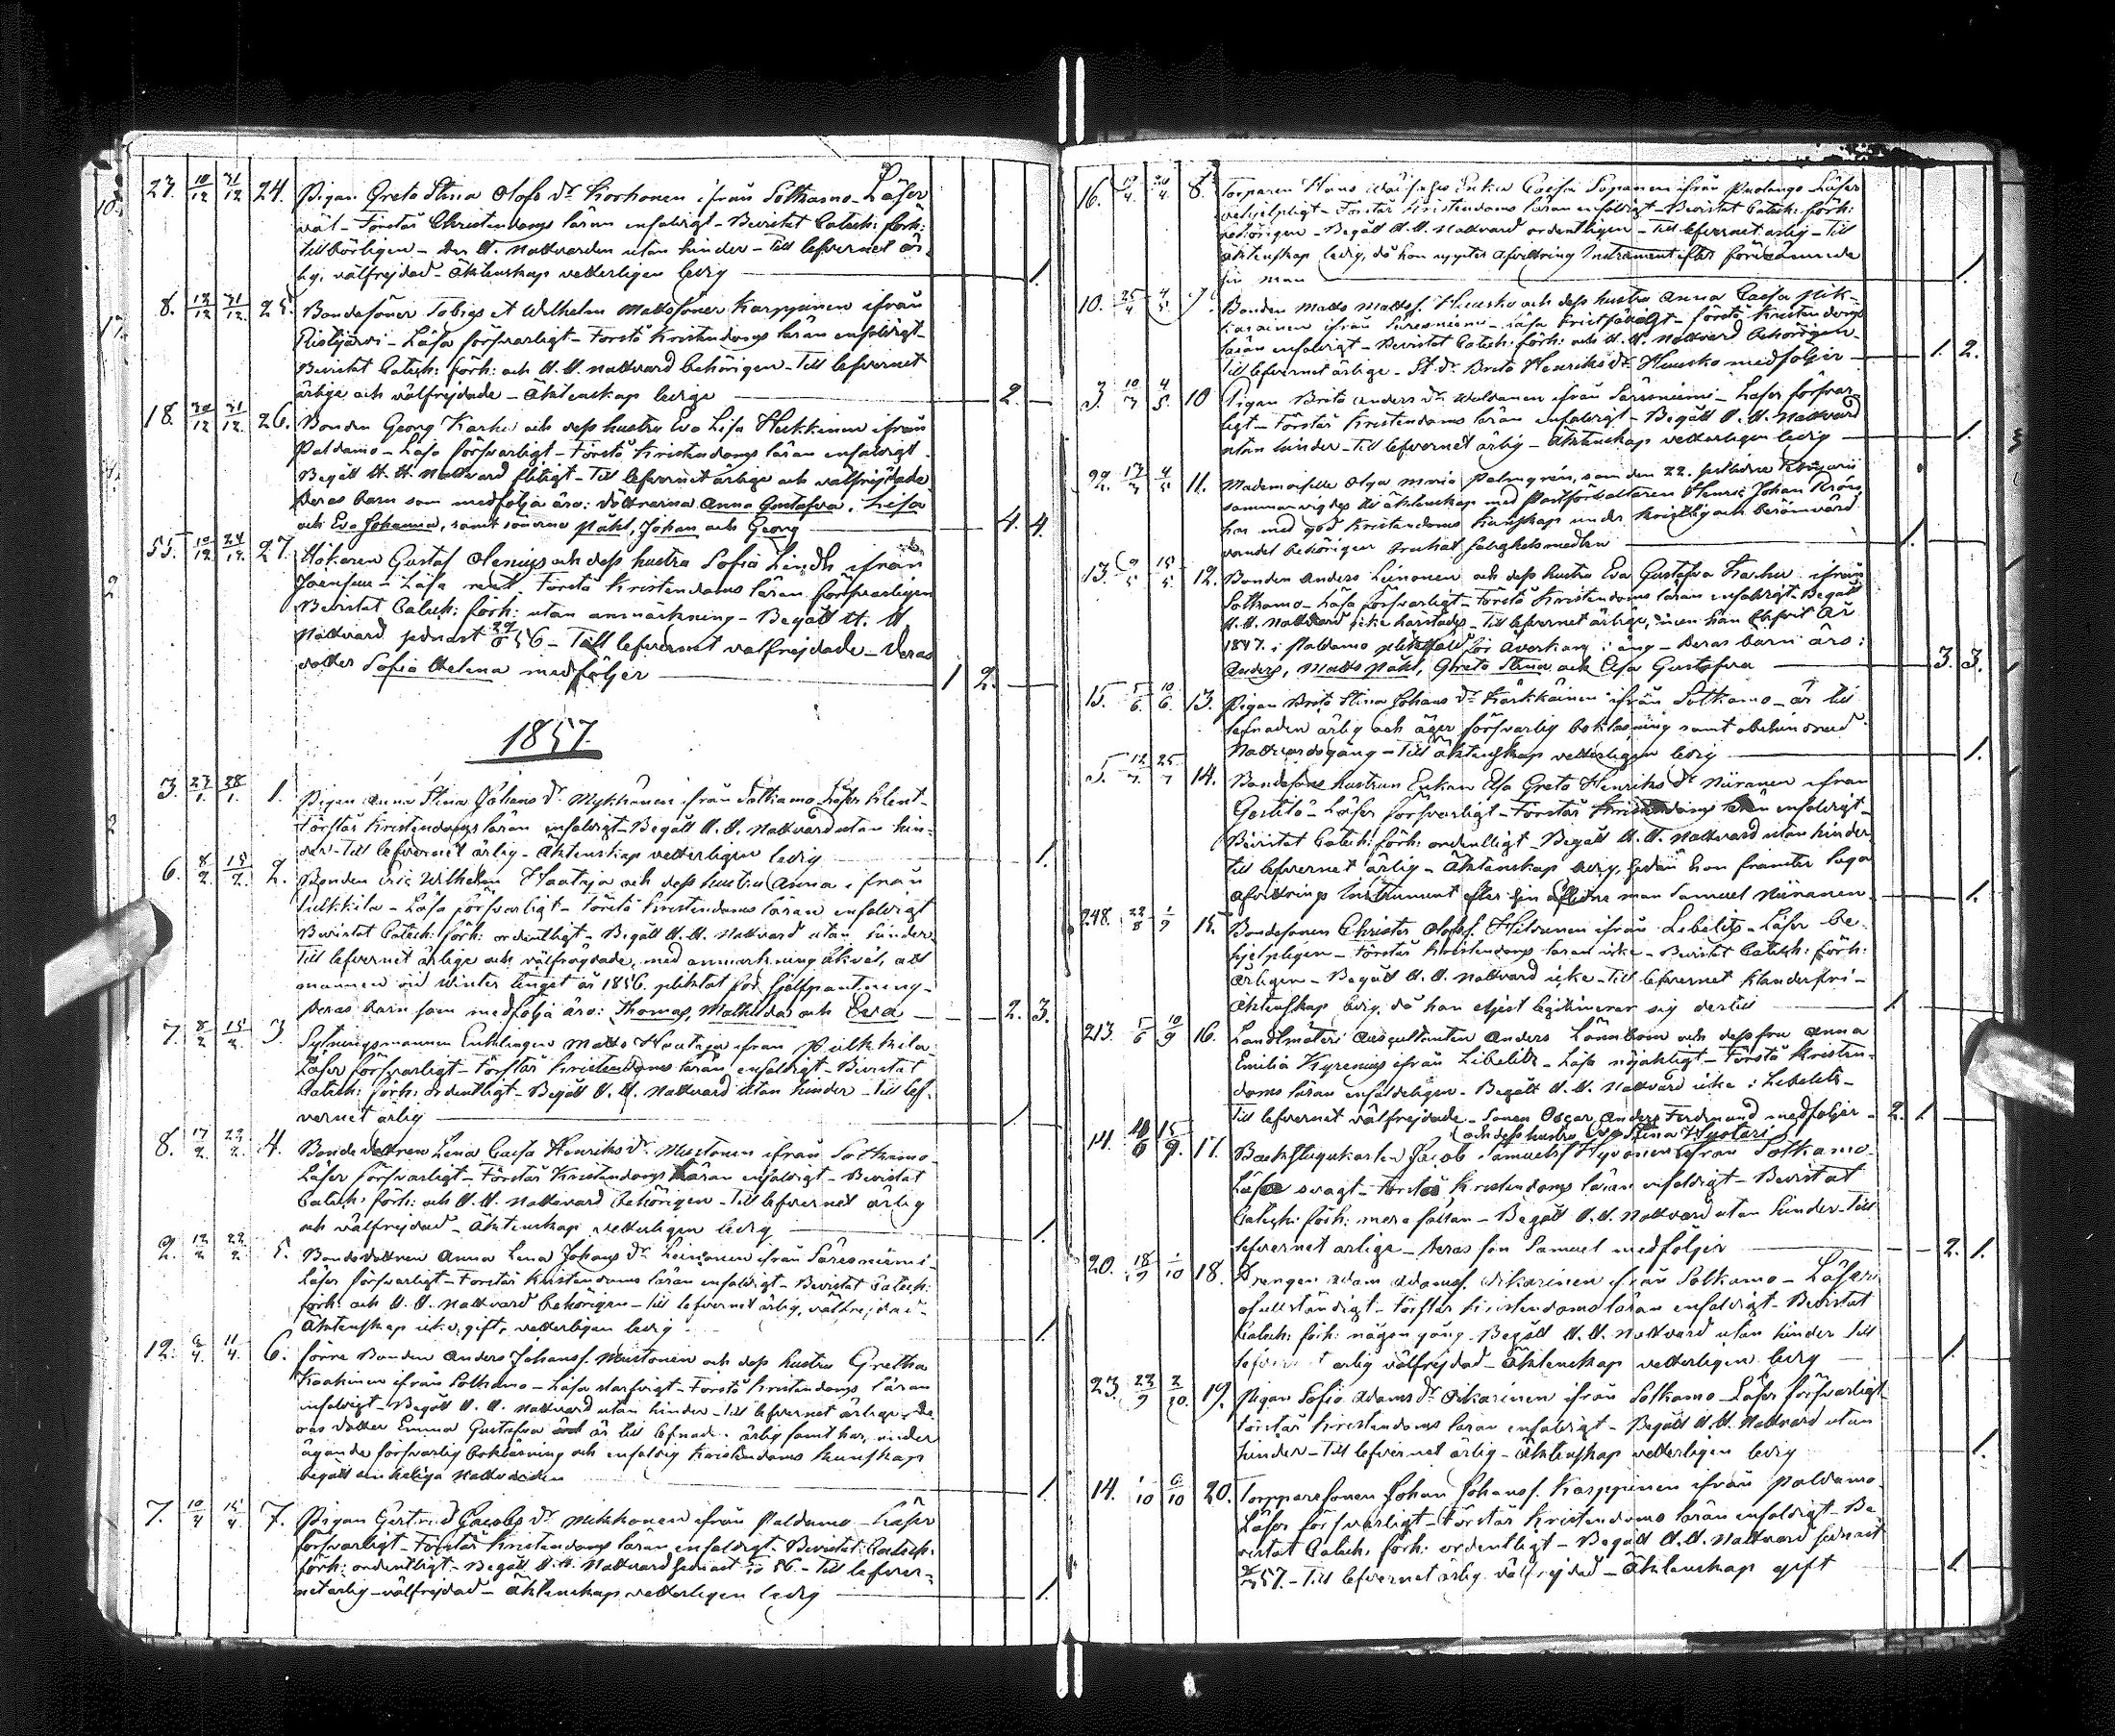 27. 10/12 31/12 24. Pigan Greta Stina Olofs Dr Korhonen ifrån Sotkamo - Läser
väl - Förstår Christendoms läran enfaldigt - Bevistat Catech: förh:
tillbörligen - Den H. Nattvarden utan hinder - Till lefvernet är-
lig, välfrejdad - Äktenskap vetterligen ledig 1.
8. 12/12 31/12 25. Bondesöner Tobias et Wilhelm Mattssöner Karppinen ifrån
Ristijärvi - Läsa försvarligt - Förstå Kristendoms läran enfaldigt -
Bevistat Catech: förh: och H. H. Nattvard behörigen - Till lefvernet
ärlige och välfrejdade - Äktenskap ledige 2.
18. 30/12 31/12 26. Bonden Georg Karhu och dess hustru Eva Lisa Heikkinen ifrån
Paldamo - Läsa försvarligt - Förstå Kristendoms läran enfaldigt
Begått H. H. Nattvard flitigt - Till lefvernet ärlige och välfrejdade
Deras barn som medfölja äro: döttrarna Anna Gustafva, Lisa
och Eva Johanna, samt sönerna Påhl, Johan och Georg 4. 4.
55. 10/12 24/12 27. Hökaren Gustaf Alenius och dess hustru Sofia Lindh ifrån
Joensuu - Läsa rent. Förstå Kristendoms läran försvarligen
Bevistat Catech: förh: utan anmärkning - Begått H. H.
Nattvard sednast 56 - Till lefvernet välfrejdade - Deras
dotter Sofia Helena medföljer 1 2.
1857.
3. 27/1. 28/1. 1. Pigan Anna Stina Johans Dr Mykkänen ifrån Sotkamo Läser
Förstår Kristendoms läran enfaldigt - Begått H. H. Nattvard utan hin-
der - Till lefvernet ärlig - Äktenskap vetterligen ledig 1.
6. 8/2 15/2. 2. Bonden Eric Wilhelm Haataja och dess hustru Anna ifrån
Pulkkila - Läsa försvarligt - Förstå Kristendoms läran enfaldigt
Bevistat Catech: förh: ordentligt - Begått H. H. Nattvard utan hinder
Till lefvernet ärlige och välfrejdade, med anmärkning likväl, att
mannen vid Winter tinget år 1856. pliktat för sjelfpantning -
Deras barn som medfölja äro: Thomas, Mathilda och Eva 2. 3.
7. 8/2 15/2. 3. Sytningsmannen Enklingen Matts Haataja ifrån Pulkkila
Läser försvarligt - Förstår Kristendoms läran enfaldigt - Bevistat
Catech: förh: ordentligt - Begått H. H. Nattvard utan hinder - Till lef-
vernet ärlig 1.
8. 17/2. 22/2. 4. Bondedottren Lena Caisa Henriks Dr Mustonen ifrån Sotkamo
Läser försvarligt - Förstår Kristendoms läran enfaldigt - Bevistat
Catech: förh: och H. H. Nattvard behörigen - Till lefvernet ärlig
och välfrejdad - Äktenskap vetterligen ledig 1.
9. 12/2 22/2. 5. Bondedottren Anna Lena Johans Dr Leinonen ifrån Säresniemi -
Läser försvarligt - Förstår Kristendoms läran enfaldigt - Bevistat Catech:
förh: och H. H. Nattvard behörigen - Till lefvernet ärlig, välfrejdad
Äktenskap icke gift, vetterligen ledig 1.
12. 6/4. 11/4. 6. Förre Bonden Anders Johanss. Mustonen och dess hustru Gretha
ifrån Sotkamo - Läsa - Förstå Kristendoms läran
enfaldigt - Begått H. H. Nattvard utan hinder - Till lefvernet ärlige, De-
ras dotter Emma Gustafva är till lefnaden ärlig samt har, under
ägande försvarlig bokläsning och enfaldig Kristendoms kunskap
begått den heliga Nattvarden 1.
7. 10/4 15/4. 7. Pigan Gertrud Jacobs Dr Mikkonen ifrån Paldamo - Läser
försvarligt - Förstår Kristendoms läran enfaldigt. Bevistat Catech:
förh: ordentligt - Begått H. H. Nattvard sednast 56. - Till lefver-
net ärlig - välfrejdad - Äktenskap vetterligen ledig 1.
16. 4. 4. 8. Torparen Hans Enka Caisa ifrån Puolango - Läser
- Förstår Kristendoms läran enfaldigt - Bevistat Catech: förh:
behörigen - Begått H. H. Nattvard ordentligen - Till lefvernet ärlig - Till
äktenskap ledig, då hon uppter Afvittrings Instrument efter
sin man 1.
10. 25/4 4/5 9. Bonden Matts Mattss. Huusko och dess hustru Anna Caisa Mik-
ifrån Säresniemi - Läsa - Förstå Kristendoms
läran enfaldigt - Bevistat Catech: förh: och H. H. Nattvard behörigen -
Till lefvernet ärlige - Dr Brita Henriks Dr Huusko medföljer 1. 2.
3. 10 4/5. 10 Pigan Brita Anders Dr ifrån Säresniemi - Läser försvar-
ligt - Förstår Kristendoms läran enfaldigt - Begått H. H. Nattvard
utan hinder - Till lefvernet ärlig - Äktenskap vetterligen ledig 1.
92. 4/5 11. Mademoiselle Olga Maria Palmgren, som den 22. Februarii
sammanvigdes till äktenskap med Henric Johan
har med god Kristendoms kunskap under Kristlig och berömvärd
vandel behörigen brukat salighetsmedlen 1.
13. 9/5 15/5. 12. Bonden Anders Leinonen och dess hustru Eva Gustafva Karhu ifrån
Sotkamo - Läsa försvarligt - Förstå Kristendoms läran enfaldigt. Begått
H. H. Nattvard icke - Till lefvernet ärlige, men han År
1847. i Paldamo för åverkan i äng - Deras barn äro:
Anders, Matts Påhl, Greta Stina och Elsa Gustafva 3. 3.
15. 5/6. 10/6. 13. Pigan Brita Stina Johans Dr Kärkkäinen ifrån Sotkamo - är till
lefnaden ärlig och äger försvarlig bokläsning samt obehindrad
Nattvardsgång - Till äktenskap vetterligen ledig 1.
5. 12/7. 25/7 14. hustrun Enkan Elsa Greta Henriks Dr Niiranen ifrån
- Läser försvarligt - Förstår Kristendoms läran enfaldigt -
Bevistat Catech: förh: ordentligt - Begått H. H. Nattvard utan hinder
Till lefvernet ärlig - Äktenskap ledig, sedan hon framter laga
afvittrings Instrument efter sin aflidne man Samuel Niiranen 1.
248. 22/8 1/9 15. Bondesonen Christer Olofss. Hiltunen ifrån Libelits - Läser be-
hjelpligen - Förstår Kristendoms läran icke - Bevistat Catech: förh:
årligen - Begått H. H. Nattvard icke - Till lefvernet klanderfri -
Äktenskap ledig, då han edjest legitimerar sig dertill 1.
213. 5/8 10/9 16. Landtmäteri Auscultanten Anders Lönnbom och dess fru Anna
Emilia Kyrenius ifrån Libelits - Läsa nöjaktigt - Förstå Kristen-
doms läran enfaldeligen - Begått H. H. Nattvard icke i Libelits -
Till lefvernet välfrejdade - Sonen Oscar Anders Ferdinand medföljer 2. 1.
och dess hustru Eva Stina
14. 15/9. 17. Backstugukarlen Jacob Samuelss. Hyvönen ifrån Sotkamo
Läsa svagt - Förstå Kristendoms läran enfaldigt - Bevistat
Catech: förh: mera sällan - Begått H. H. Nattvard utan hinder - Till
lefvernet ärlige - Deras son Samuel medföljer 2. 1.
20. 18/9 1/10 18. Drengen Adam Adamss. Oikarinen ifrån Sotkamo - Läser
ofullständigt - Förstår Kristendoms läran enfaldigt - Bevistat
Catech: förh: någon gång - Begått H. H. Nattvard utan hinder till
lefvernet ärlig välfrejdad - Äktenskap vetterligen ledig 1.
23. 22/9 2/10. 19. Pigan Sofia Adams Dr Oikarinen ifrån Sotkamo - Läser försvarligt
Förstår Kristendoms läran enfaldigt - Begått H. H. Nattvard utan
hinder - Till lefvernet ärlig - Äktenskap vetterligen ledig 1.
14. 1/10 6/10 20. Torparesonen Johan Johanss. Karppinen ifrån Paldamo
Läser försvarligt - Förstår Kristendoms läran enfaldigt - Be-
vistat Catech. förh: ordentligt - Begått H. H. Nattvard sednast
57. - Till lefvernet ärlig välfrejdad - Äktenskap gift 1.